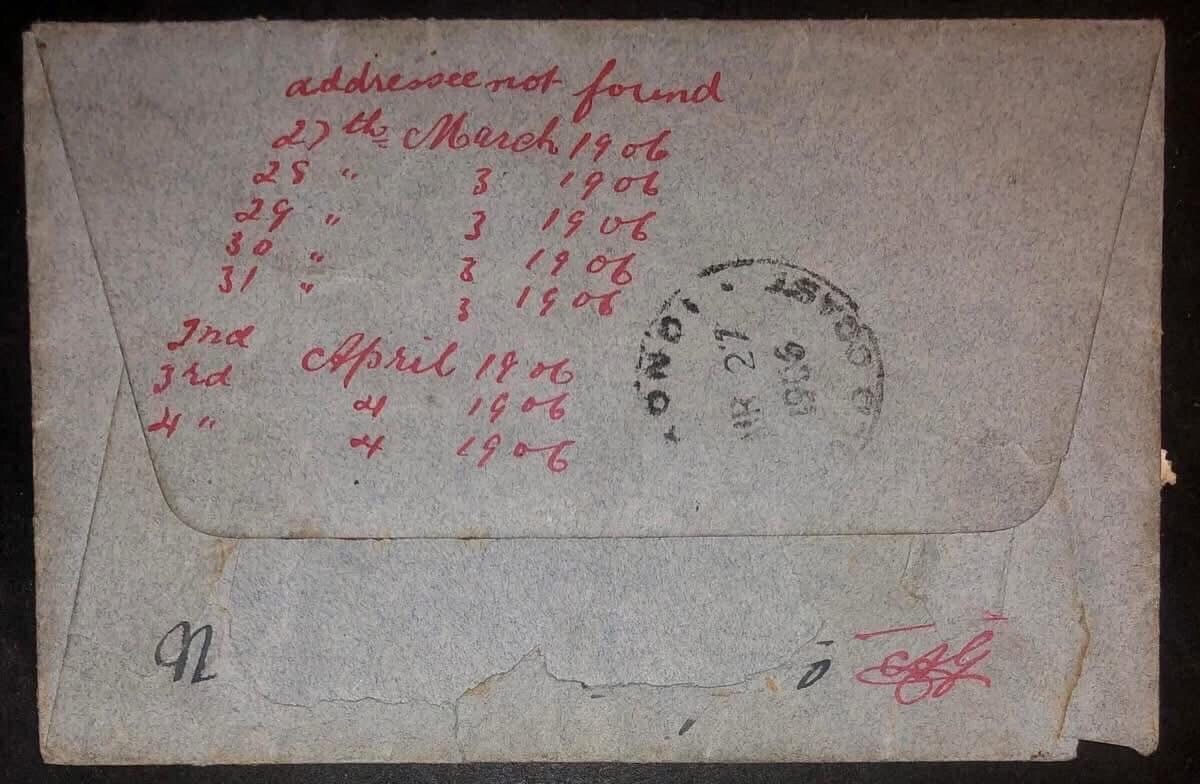 addressee not found
27th March 1906
28 " 3 1906
29 " 3 1906
30 " 3 1906
31 " 3 1906
2nd April 1906
3rd 4 1906
4 " 4 1906
27
1906
N